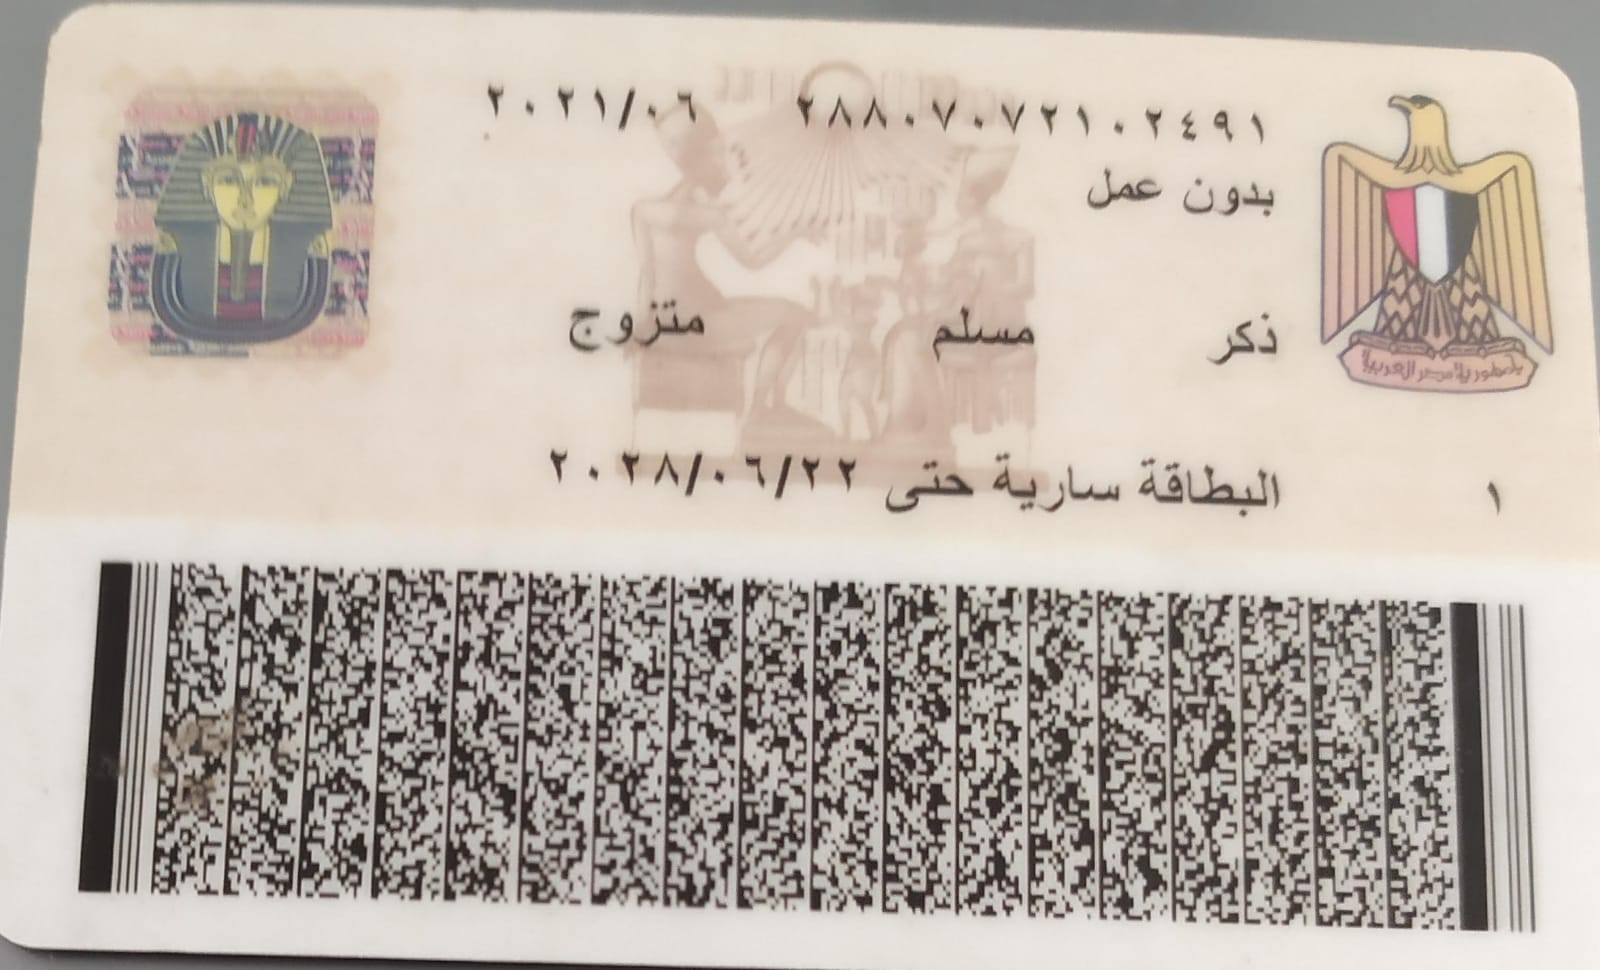 ٢٨٨٠٧٠٧٢١٠٢٤٩١ ٢٠٢١/٠٦
بدون عمل
ذكر مسلم متزوج
١ البطاقة سارية حتى ٢٠٢٨/٠٦/٢٢